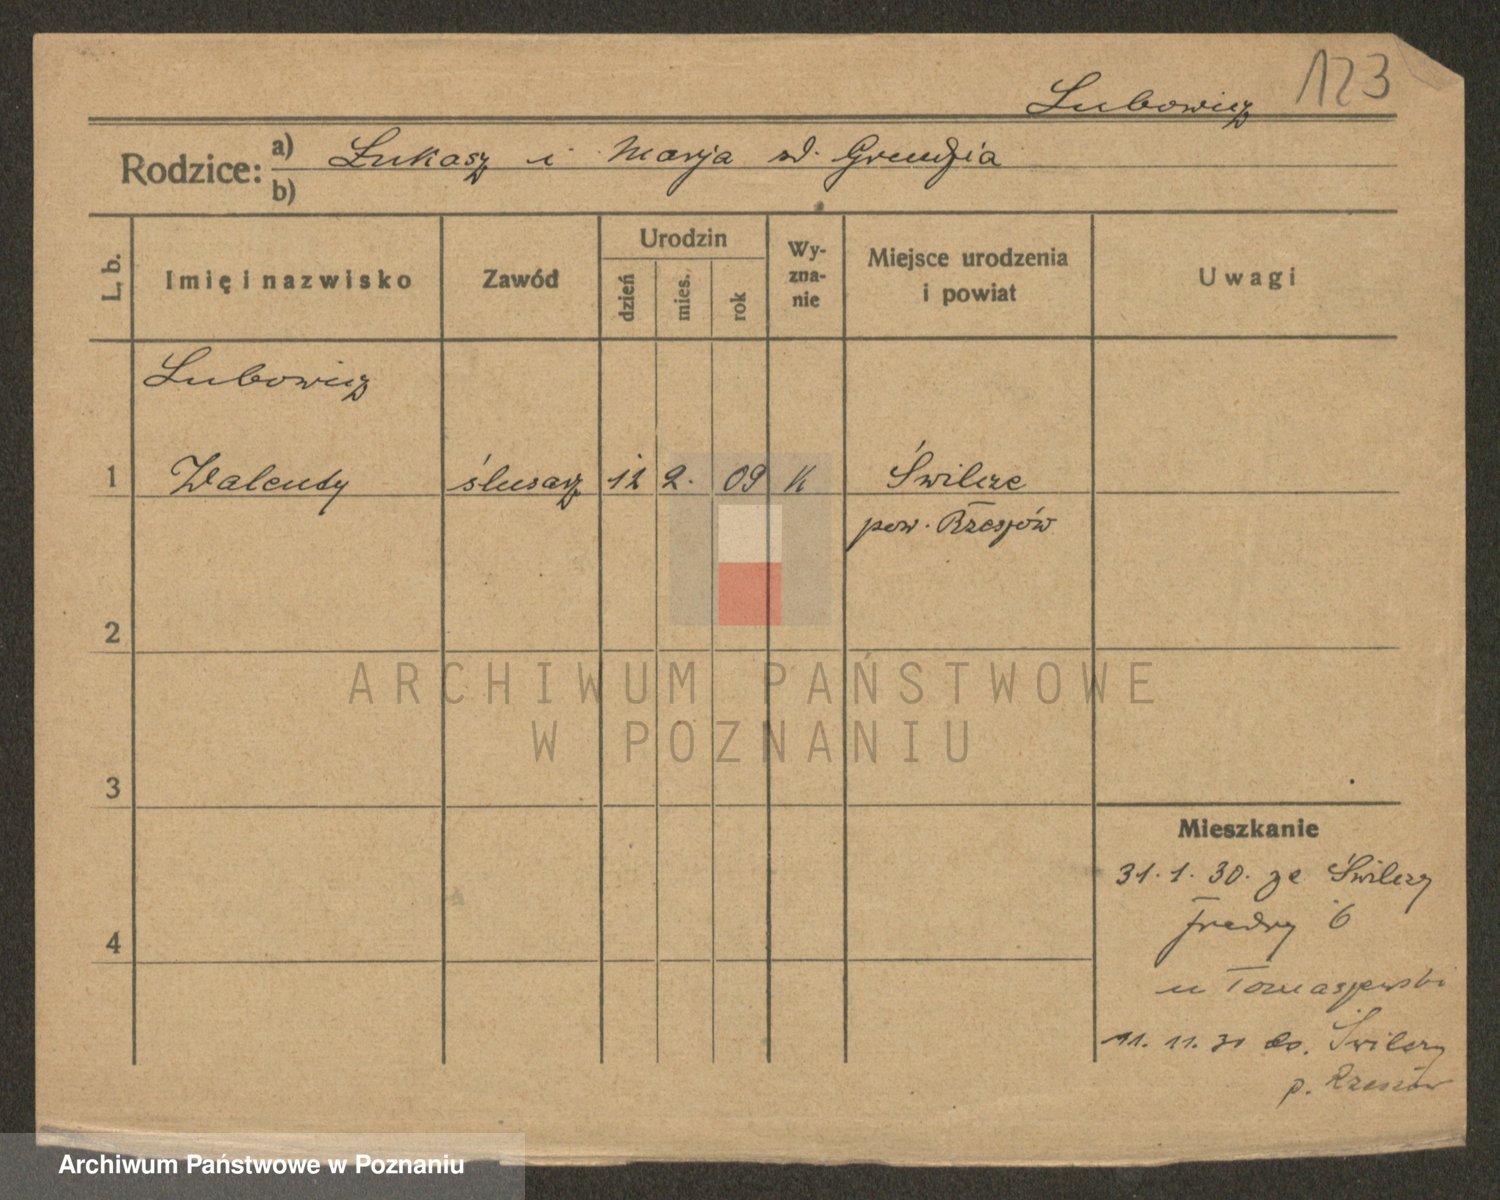 123
Lubowicz
Rodzice:
a) Łukasz i Marja zd. Grendzia
b)
L. b.
Imię i nazwisko
Zawód
Urodzin
dzień
mies.
rok
Wy-
zna-
nie
Miejsce urodzenia
i powiat
Uwagi
Lubowicz
1 Walenty ślusarz 12 2. 09 K Świlcze
pow. Rzeszów
2
3
4
Mieszkanie
31. 1. 30. ze Świlczy
Fredry 6
u Tomaszewski
11. 11. 30 do. Świlczy
p. Rzeszów
ARCHIWUM PAŃSTWOWE
W POZNANIU
Archiwum Państwowe w Poznaniu